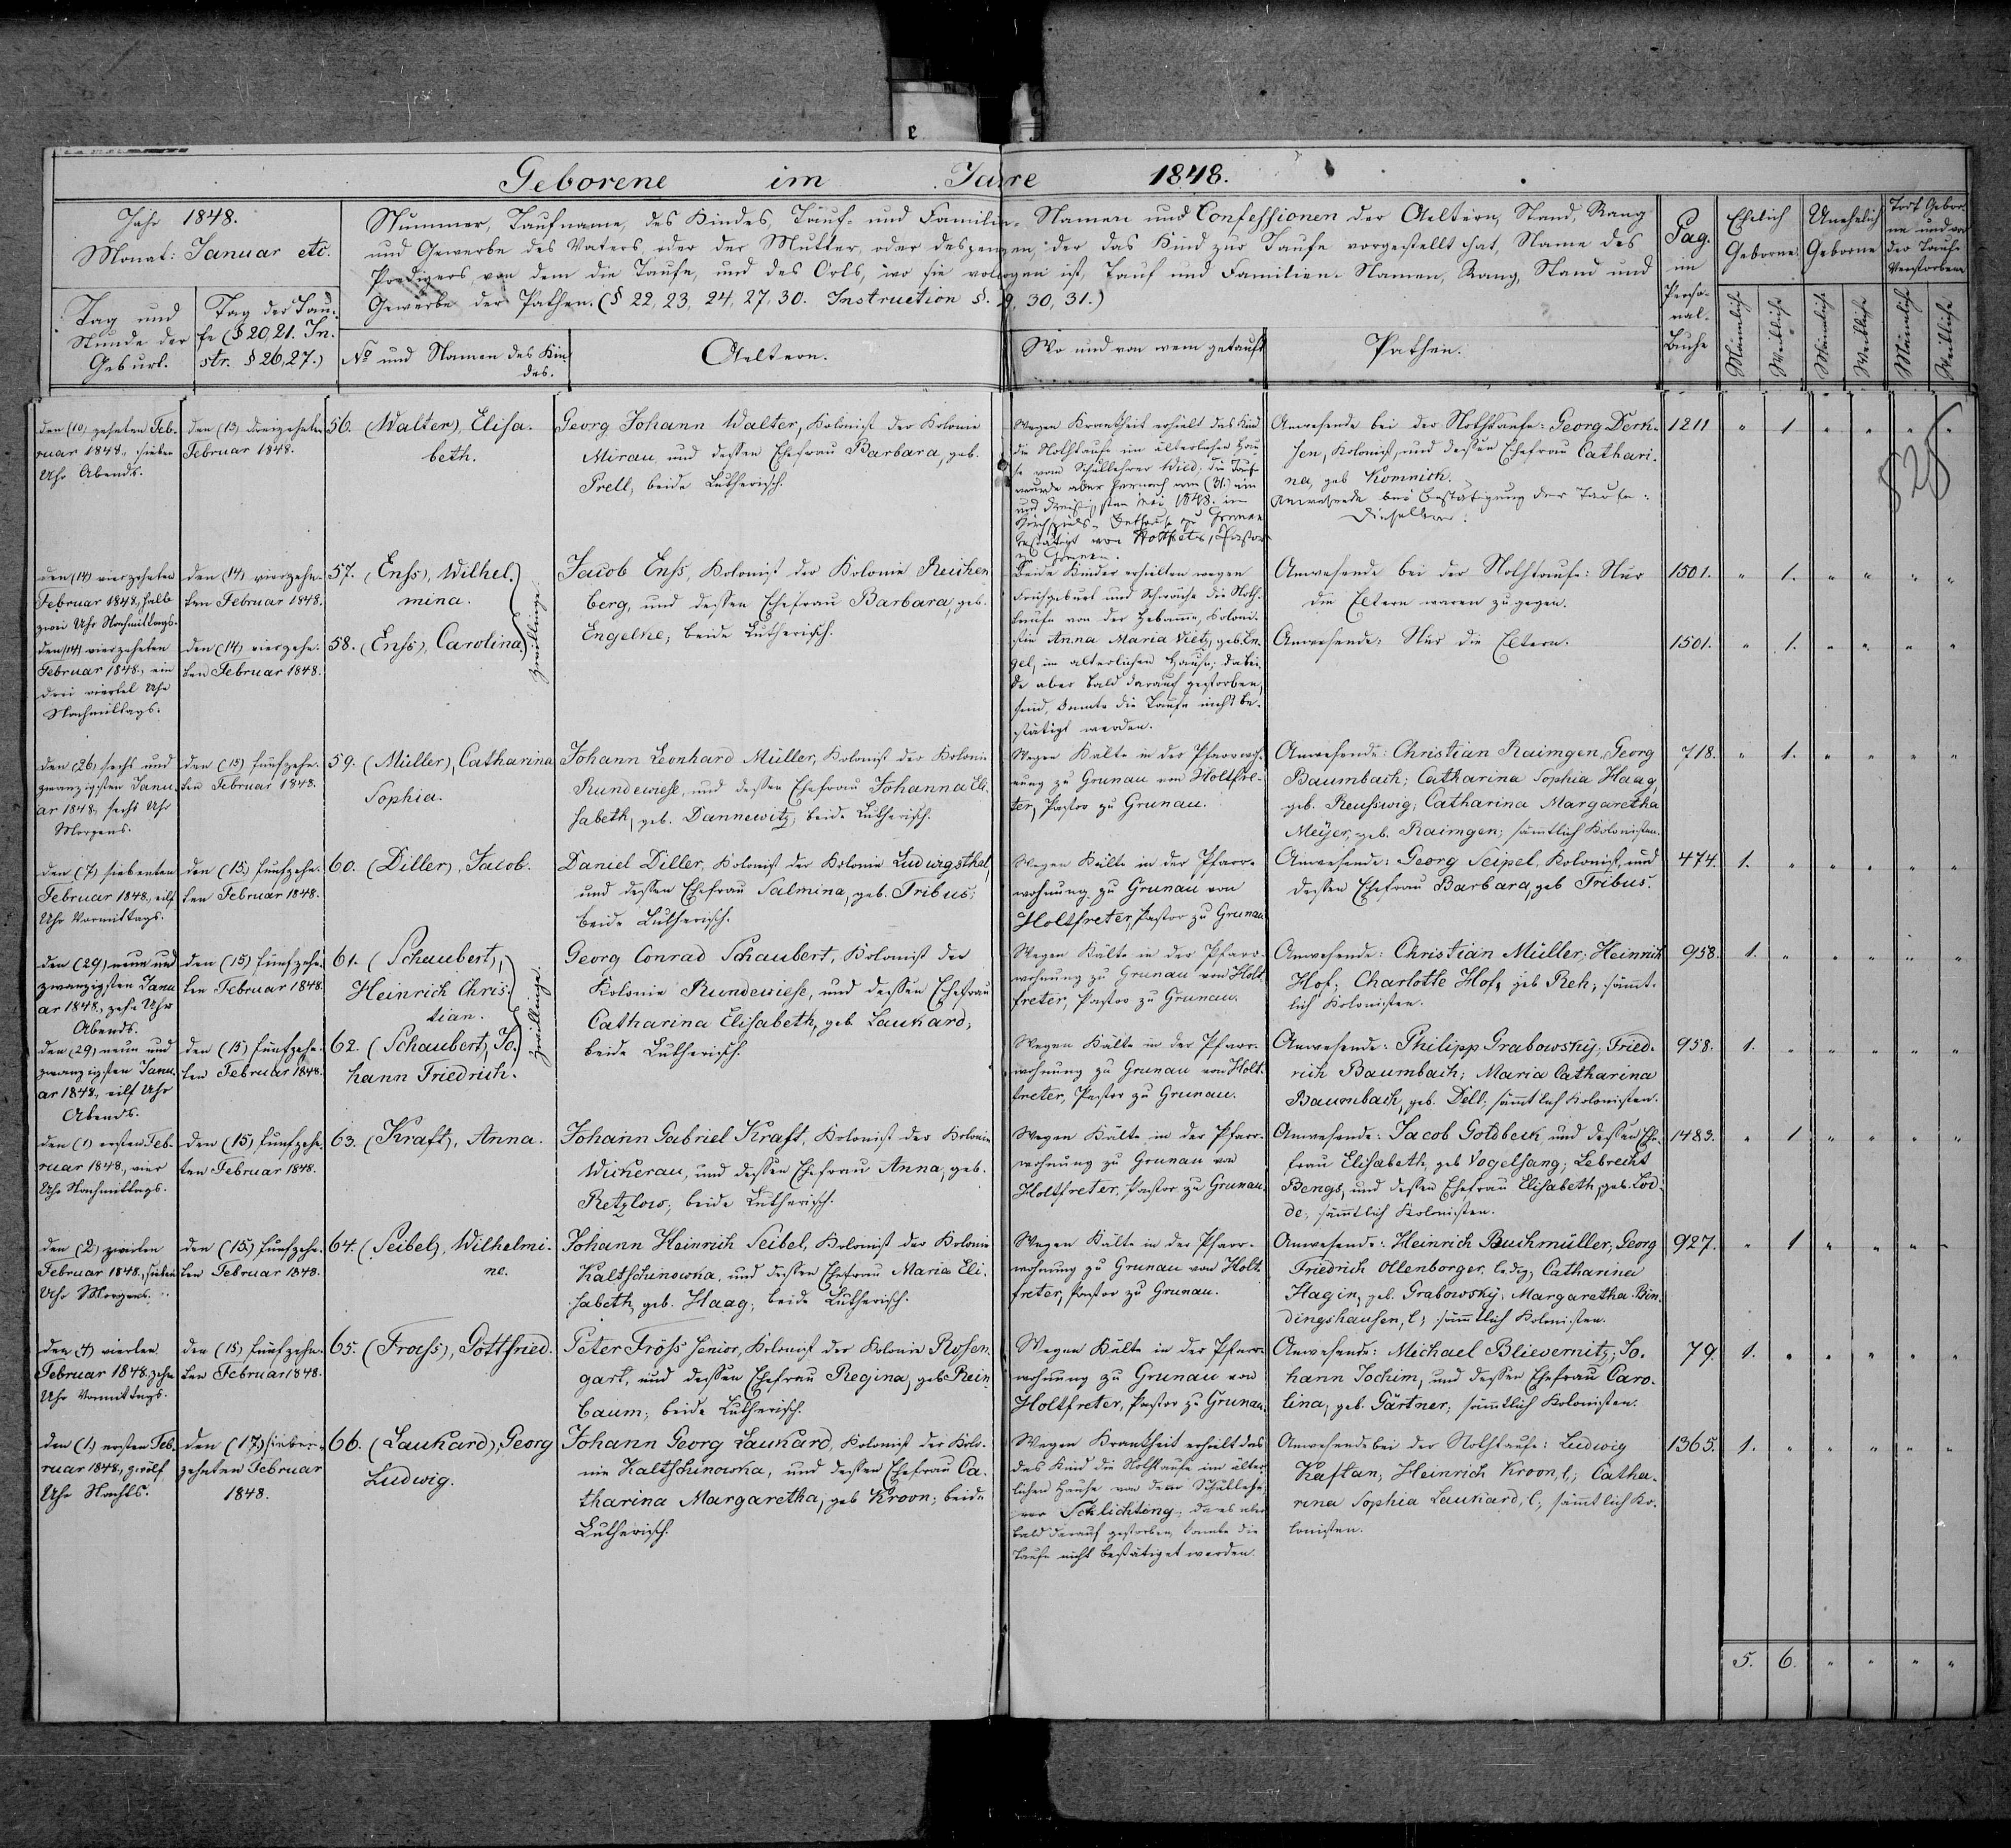 Geborene im Jahre 1848.
Jahr 1848.
Monat: Januar etc.
Tag und
Stunde der
Geburt.
Tag der Tau-
fe (§ 20, 21. In-
str. § 26, 27.)
Nummer, Taufname, des Kindes, Tauf- und Familien- Namen und Confessionen der Aeltern, Stand, Rang
und Gewerbe des Vaters, oder der Mutter, oder desjenigen, der das Kind zur Taufe vorgestellt hat, Name des
Predigers, von dem die Taufe, und des Orts, wo sie vollzogen ist, Tauf und Familien-Namen, Rang, Stand und
Gewerbe der Pathen. (§ 22, 23, 24, 27, 30. Instruction §. 29, 30, 31.)
No und Namen des Kin-
des.
Aeltern.
Wo und von wem getauft
Pathen.
Pag.
im
Perso-
nal-
Buche
Ehelich
Geborne.
Unehelich
Geborne
Todt Gebor-
ne und vor
der Taufe
Verstorbene
Männlich
Weiblich
Männlich
Weiblich
Männlich
Weiblich
den (10) zehnten Feb-
ruar 1848., sieben
Uhr Abends.
den (13) dreizehnten
Februar 1848.
56. (Walter), Elisa-
beth.
Georg Johann Walter, Kolonist der Kolonie
Mirau, und dessen Ehefrau Barbara, geb.
Prell, beide Lutherisch.
Wegen Krankheit erhielt das Kind
die Nothtaufe im älterlichen Hau-
se vom Schullehrer Wild; die Taufe
wurde aber hernach am (31.) ein
und dreißigsten Mai 1848. im
Kirchspiels-Bethause zu Grunau
bestätigt von Holtfreter, Pastor
zu Grunau.
Anwesende bei der Nothtaufe: Georg Derk-
sen, Kolonist, und dessen Ehefrau Cathari-
na, geb Komnick.
Anwesende bei Bestätigung der Taufe:
Dieselben.
1211 " 1 " " " "
825
den (14) vierzehnten
Februar 1848., halb
zwei Uhr Nachmittags.
den (14) vierzehn-
ten Februar 1848.
57. (Enss), Wilhel-
mina.
Zwillinge.
Jacob Enss, Kolonist der Kolonie Reichen-
berg, und dessen Ehefrau Barbara, geb.
Engelke; beide Lutherisch.
Beide Kinder erhielten wegen
Frühgeburt und Schwäche die Noth-
taufe von der Hebamme, Koloni-
stin Anna Maria Vietz, geb. En-
gel, im älterlichen Hause; da bei-
de aber bald darauf gestorben
sind, konnte die Taufe nicht be-
stätigt werden.
Anwesende bei der Nothtaufe: Nur
die Eltern waren zugegen.
1501. " 1. " " " "
den (14) vierzehnten
Februar 1848., ein
drei viertel Uhr
Nachmittags.
den (14) vierzehn-
ten Februar 1848.
58. (Enss), Carolina.
Anwesende: Nur die Eltern.
1501. " 1. " " " "
den (26) sechs und
zwanzigsten Janu-
ar 1848., sechs Uhr
Morgens.
den (15) fünfzehn-
ten Februar 1848.
59. (Müller), Catharina
Sophia.
Johann Leonhard Müller, Kolonist der Kolonie
Rundewiese, und dessen Ehefrau Johanna Eli-
sabeth, geb. Dannewitz; beide Lutherisch.
Wegen Kälte in der Pfarrwoh-
nung zu Grunau von Holtfre-
ter, Pastor zu Grunau.
Anwesende: Christian Raimgen, Georg
Baumbach; Catharina Sophia Haag,
geb. Reusswig; Catharina Margaretha
Meÿer, geb. Raimgen; sämtlich Kolonisten.
718. " 1. " " " "
den (7) siebenten
Februar 1848., eilf
Uhr Vormittags.
den (15) fünfzehn-
ten Februar 1848.
60. (Diller), Jacob.
Daniel Diller, Kolonist der Kolonie Ludwigsthal,
und dessen Ehefrau Salmina, geb. Tribus;
beide Lutherisch.
Wegen Kälte in der Pfarr-
wohnung zu Grunau von
Holtfreter, Pastor zu Grunau
Anwesende: Georg Seipel, Kolonist, und
dessen Ehefrau Barbara, geb Tribus.
474. 1. " " " " "
den (29) neun und
zwanzigsten Janu-
ar 1848., zehn Uhr
Abends.
den (15) fünfzehn-
ten Februar 1848.
61. (Schaubert),
Heinrich Chris-
tian.
Zwillinge.
Georg Conrad Schaubert, Kolonist der
Kolonie Rundewiese, und dessen Ehefrau
Catharina Elisabeth, geb. Laukard;
beide Lutherisch.
Wegen Kälte in der Pfarr-
wohnung zu Grunau von Holt-
freter, Pastor zu Grunau.
Anwesende: Christian Müller; Heinrich
Hof; Charlotte Hof, geb Reh; sämt-
lich Kolonisten.
958. 1. " " " " "
den (29) neun und
zwanzigsten Janu-
ar 1848., eilf Uhr
Abends.
den (15) fünfzehn-
ten Februar 1848.
62. (Schaubert), Jo-
hann Friedrich.
Wegen Kälte in der Pfarr-
wohnung zu Grunau von Holt-
freter, Pastor zu Grunau.
Anwesende: Philipp Grabowskÿ, Fried-
rich Baumbach; Maria Catharina
Baumbach, geb. Dell; sämmtlich Kolonisten.
958. 1. " " " " "
den (1) ersten Feb-
ruar 1848., vier
Uhr Nachmittags.
den (15) fünfzehn-
ten Februar 1848.
63. (Kraft), Anna.
Johann Gabriel Kraft, Kolonist der Kolonie
Wickerau, und dessen Ehefrau Anna, geb.
Retzlow; beide Lutherisch.
Wegen Kälte in der Pfarr-
wohnung zu Grunau von
Holtfreter, Pastor zu Grunau.
Anwesende: Jacob Goldbeck und dessen Ehe-
frau Elisabeth, geb Vogelsang; Lebrecht
Bengs, und dessen Ehefrau Elisabeth, geb. Lod-
de; sämmtlich Kolonisten.
1483. " 1 " " " "
den (2) zweiten
Februar 1848., sieben
Uhr Morgens.
den (15) fünfzehn-
ten Februar 1848.
64. (Seibel), Wilhelmi-
ne.
Johann Heinrich Seibel, Kolonist der Kolonie
Kaltschinowka, und dessen Ehefrau Maria Eli-
sabeth, geb. Haag; beide Lutherisch.
Wegen Kälte in der Pfarr-
wohnung zu Grunau von Holt-
freter, Pastor zu Grunau.
Anwesende: Heinrich Buchmüller; Georg
Friedrich Ollenborger, ledig; Catharina
Hagin, geb. Grabowskÿ; Margaretha Bin-
dingshausen, l; sämmtlich Kolonisten.
927. " 1 " " " "
den (4) vierten
Februar 1848., zehn
Uhr Vormittags.
den (15) fünfzehn-
ten Februar 1848.
65. (Froess), Gottfried.
Peter Fröss senior, Kolonist der Kolonie Rosen-
gart, und dessen Ehefrau Regina, geb Rein-
baum; beide Lutherisch.
Wegen Kälte in der Pfarr-
wohnung zu Grunau von
Holtfreter, Pastor zu Grunau.
Anwesende: Michael Blievernitz; Jo-
hann Jochim, und dessen Ehefrau Caro-
lina, geb. Gärtner; sämmtlich Kolonisten.
79. 1. " " " " "
den (1.) ersten Feb-
ruar 1848., zwölf
Uhr Nachts.
den (17.) sieben-
zehnten Februar
1848.
66. (Laukard), Georg
Ludwig.
Johann Georg Laukard, Kolonist der Kolo-
nie Kaltschinowka, und dessen Ehefrau Ca-
tharina Margaretha, geb Kroon; beide
Lutherisch.
Wegen Krankheit erhielt das
das Kind die Nothtaufe im älter-
lichen Hause von dem Schulleh-
rer Schlichting; da es aber
bald darauf gestorben, konnte die
Taufe nicht bestätiget werden.
Anwesende bei der Nothtaufe: Ludwig
Kaftan; Heinrich Kroon, l; Catha-
rina Sophia Laukard, l; sämmtlich Ko-
lonisten.
1365. 1. " " " " "
5. 6. " " " "